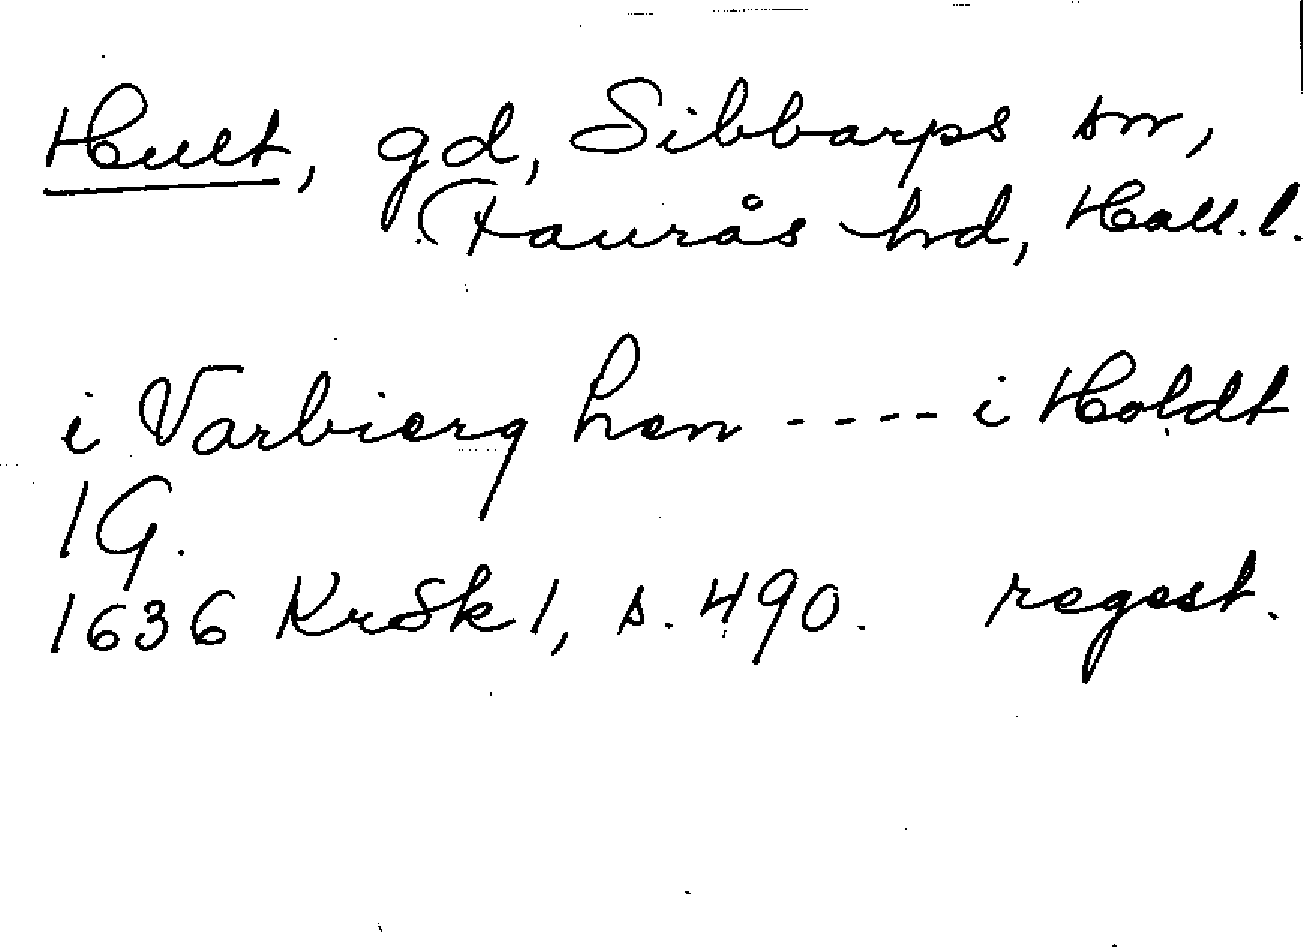 Hult, gd, Sibbarps sn,
Faurås hd, Hall.l.
i Varbierg hen ---- i Holdt
1 G.
1636 KrSk 1, s. 490. regest.